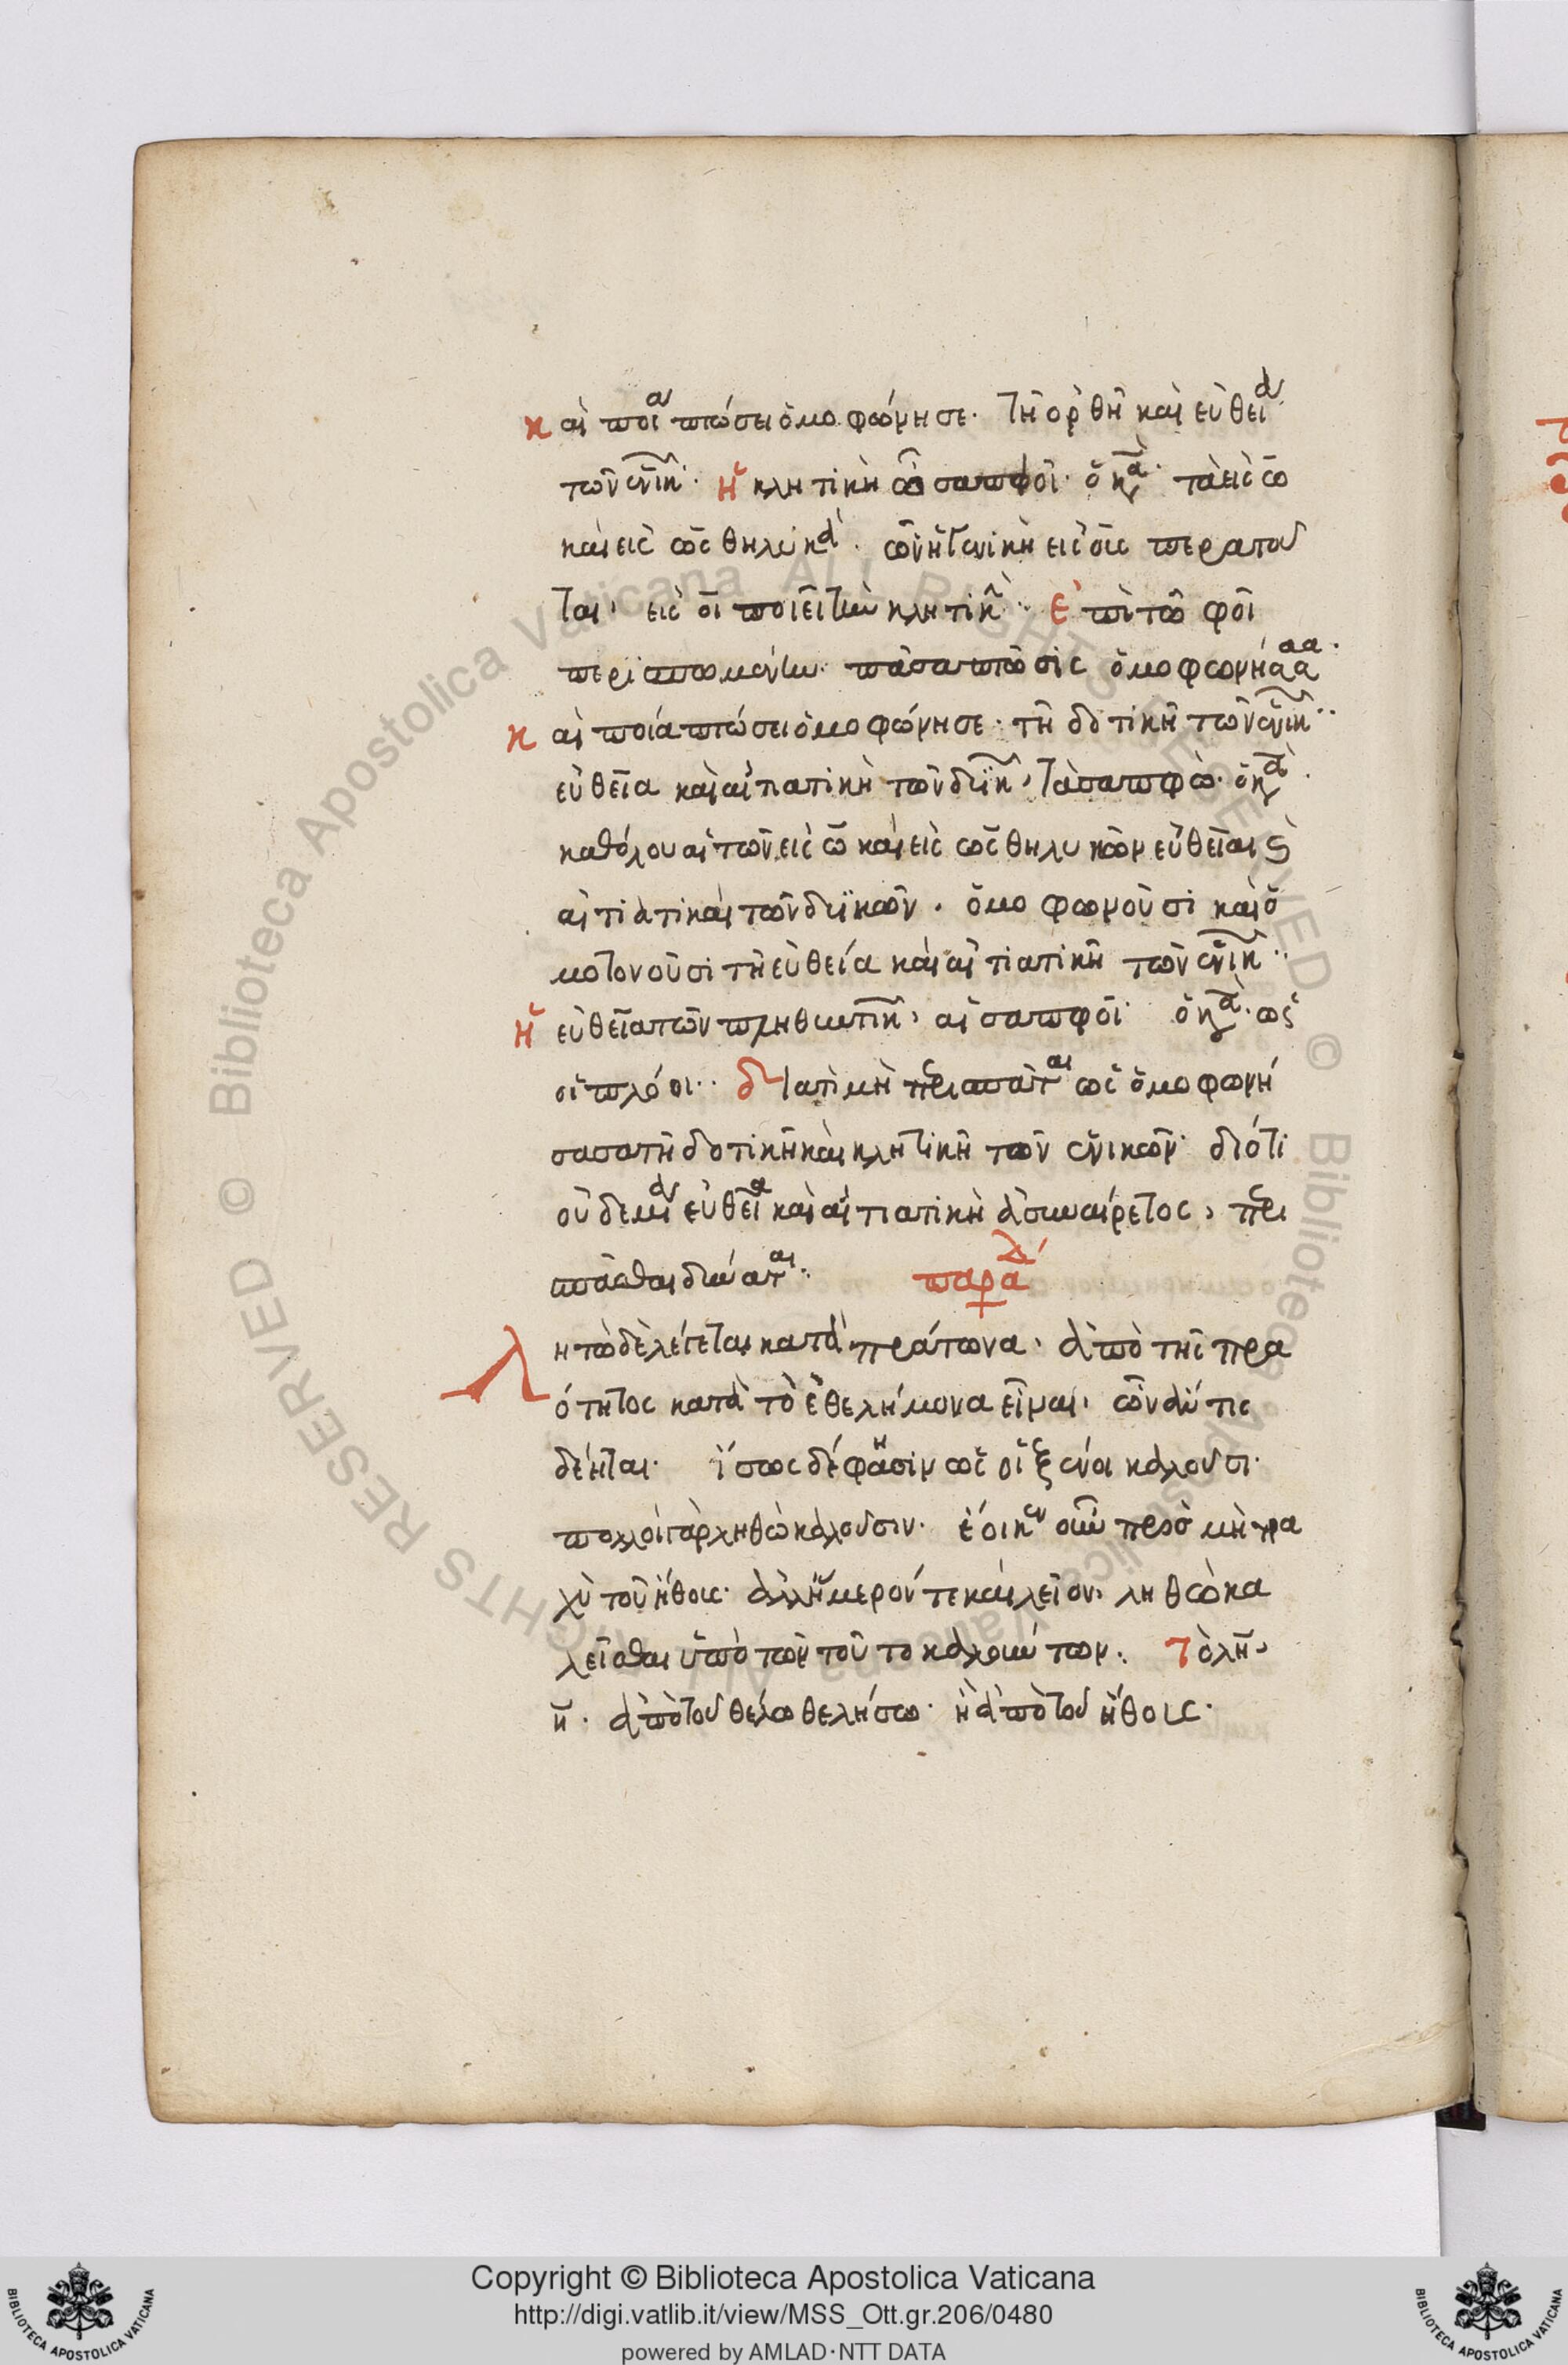 καὶ ποία πτώσει ὁμοφώνησε· τῇ ὀρθῇ καὶ εὐθεία
τῶν ἑνικ· ἡ κλητικὴ ὦ σαπφοῖ· ὁ κα· τὰ εἰς ω
καὶ εἰς ως θηλυκὰ· ὧν ἡ γενικὴ εἰς οῦς περατοῦ
ται, εἰς οῖ ποιεῖ τὴν κλητικ· ἐπὶ τῶ φοῖ
περισπωμένων· πᾶσα πτῶσις ὁμοφωνή
καὶ ποία πτώσει ὁμοφώνησε· τῇ δοτικῇ τῶν ἑνικ··
εὐθεῖα καὶ αἰτιατικὴ τῶν δυϊκ, τὰ σαπφὼ· ὁ κα·
καθόλου αἱ τῶν εἰς ω καὶ εἰς ως θηλυκῶν εὐθεῖαι ϛ
αἰτιατικαὶ τῶν δυϊκῶν· ὁμοφωνοῦσι καὶ ὁ
μοτονοῦσι τῇ εὐθεία καὶ αἰτιατικῇ τῶν ἑνικ··
ἡ εὐθεῖα τῶν πληθυντικ, αἱ σαπφοῖ· ὁ κα· ὡς
οἱ πλόοι·· διατί μὴ περισπᾶται ὡς ὁμοφωνή
σασα τῇ δοτικῇ καὶ κλητικῇ τῶν ἑνικῶν· διότι
οὐδεμία εὐθεῖα καὶ αἰτιατικὴ ἀσυναίρετος, περι
σπᾶσθαι δύναται· παρα
λητὼ δὲ λέγεται κατὰ πλάτωνα, ἀπὸ τῆς πρα
ότητος κατὰ τὸ ἐθελήμονα εἶναι, ὧν ἄν τις
δέηται· ἴσως δέ φασιν ὡς οἱ ξένοι καλοῦσι·
πολλοὶ γὰρ ληθὼ καλοῦσιν· ἔοικεν οὖν πρὸς μὴ τρα
χὺ τοῦ ἤθους· ἀλλ' ἥμερόν τε καὶ λεῖον, ληθὼ κα
λεῖσθαι ὑπὸ τῶν τοῦτο καλούντων· τὸ λη,
η· ἀπὸ τοῦ θέλω θελήσω· ἢ ἀπὸ τοῦ ἤθους·
Copyright © Biblioteca Apostolica Vaticana
http://digi.vatlib.it/view/MSS_Ott.gr.206/0480
powered by AMLAD·NTT DATA